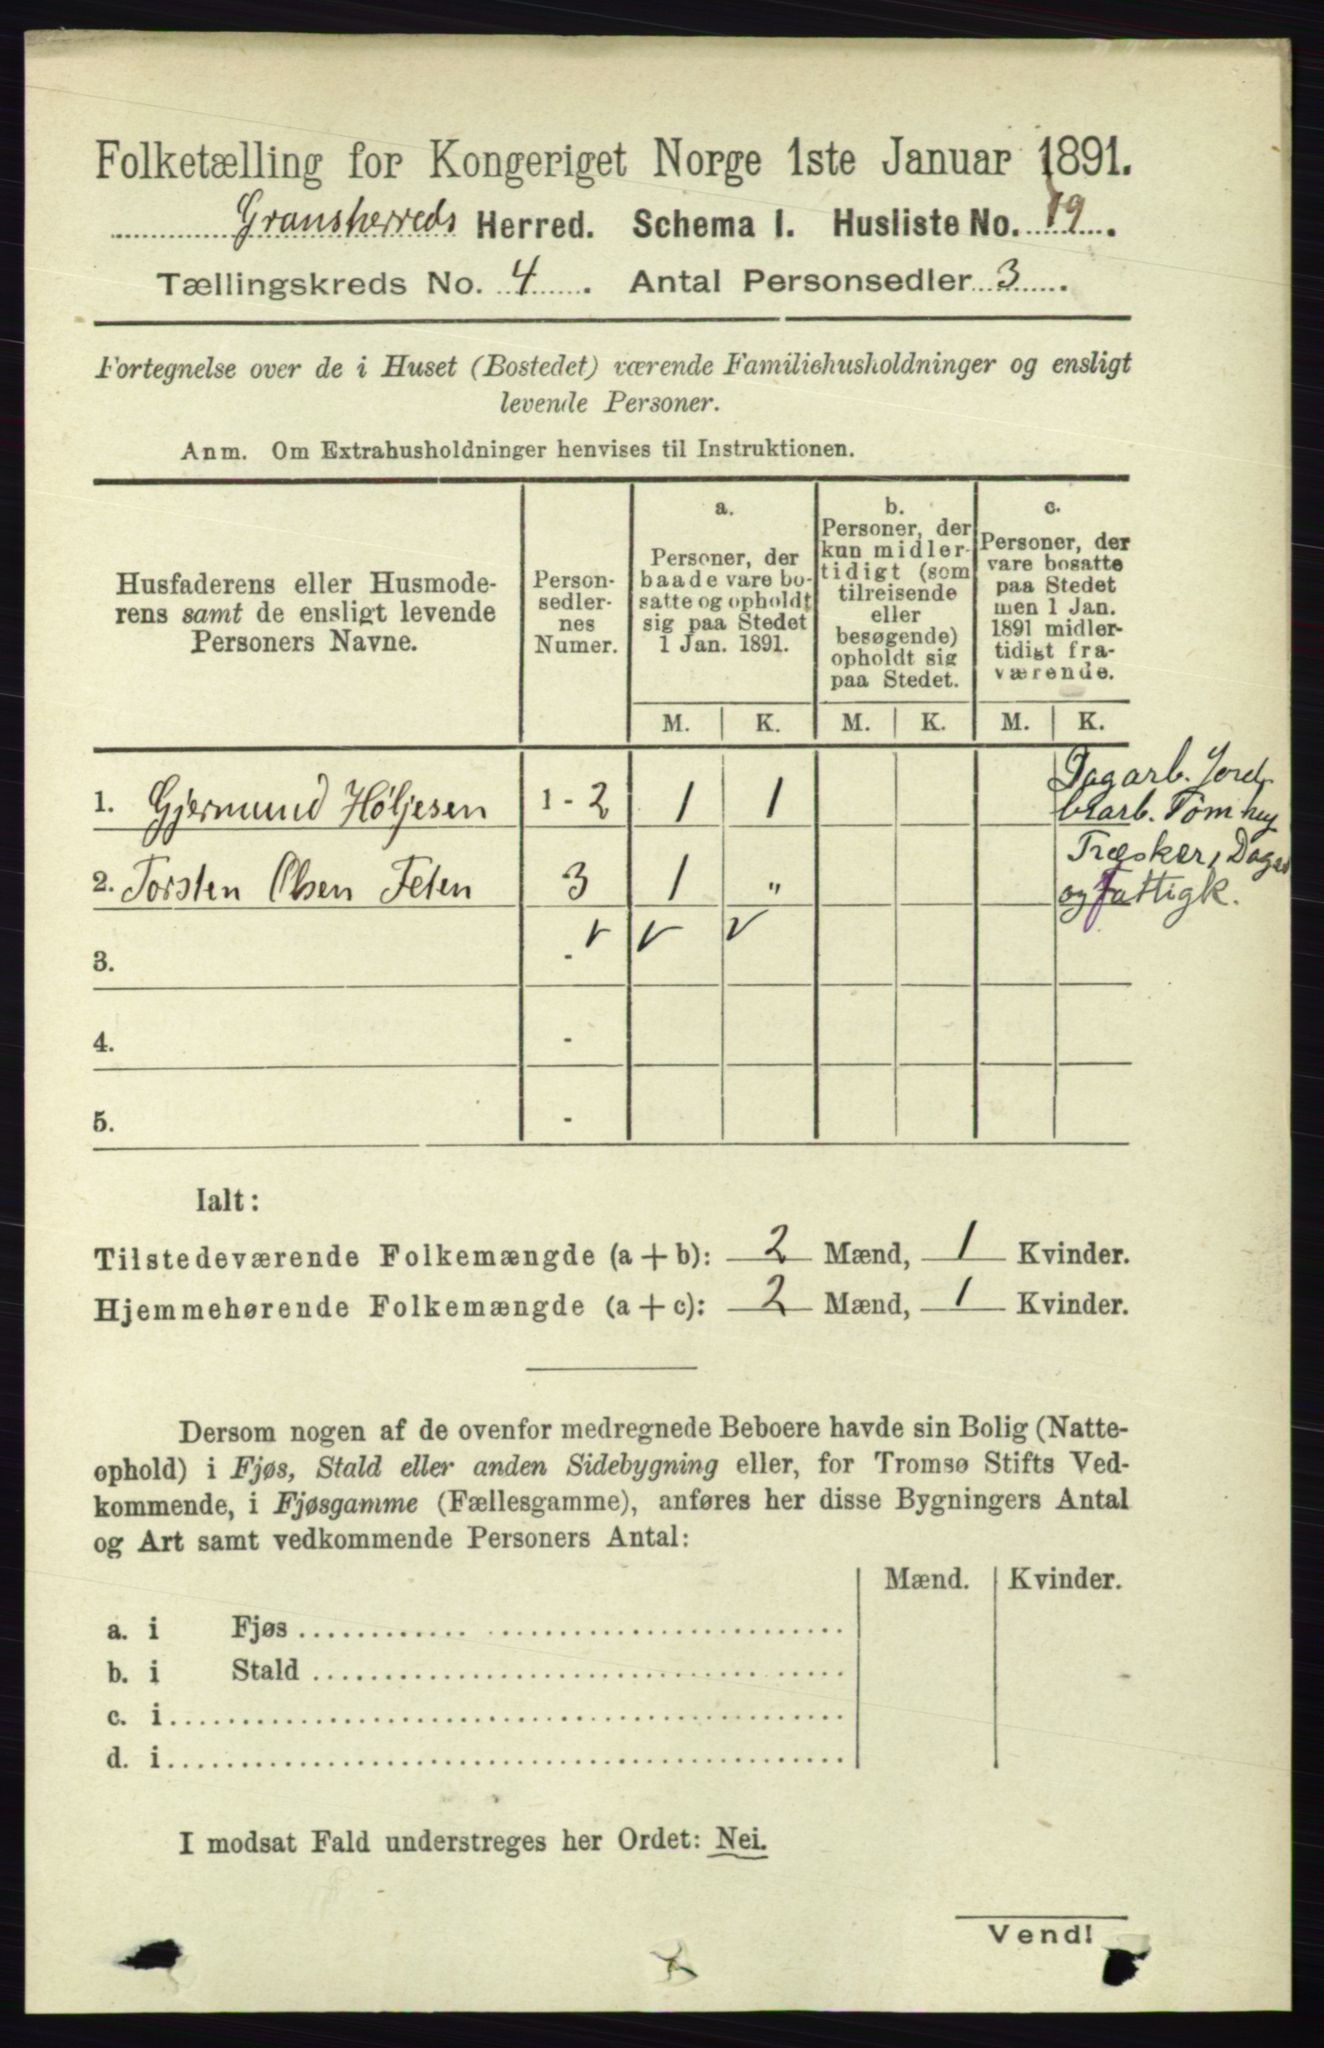 Folketælling for Kongeriget Norge 1ste Januar 1891.
Gransherreds Herred. Schema I. Husliste No. 19.
Tællingskreds No. 4. Antal Personsedler 3.
Fortegnelse over de i Huset (Bostedet) værende Familiehusholdninger og ensligt
levende Personer.
Anm. Om Extrahusholdninger henvises til Instruktionen.
Husfaderens eller Husmode-
rens samt de ensligt levende
Personers Navne.
Person-
sedler-
nes
Numer.
a.
Personer, der
baade vare bo-
satte og opholdt
sig paa Stedet
1 Jan. 1891.
b.
Personer, der
kun midler-
tidigt (som
tilreisende
eller
besøgende)
opholdt sig
paa Stedet.
c.
Personer, der
vare bosatte
paa Stedet
men 1 Jan.
1891 midler-
tidigt fra-
værende.
M. K. M. K. M. K.
1. Gjermund Höljesen 1 - 2 1 1
Dagarb. Jord
Tømhug
2. Torsten Olsen Feten 3 1 "
Træsker, Daga
og Fattigk.
3. -
4. -
5. -
Ialt:
Tilstedeværende Folkemængde (a + b): 2 Mænd, 1 Kvinder.
Hjemmehørende Folkemængde (a + c): 2 Mænd, 1 Kvinder.
Dersom nogen af de ovenfor medregnede Beboere havde sin Bolig (Natte-
ophold) i Fjøs, Stald eller anden Sidebygning eller, for Tromsø Stifts Ved-
kommende, i Fjøsgamme (Fællesgamme), anføres her disse Bygningers Antal
og Art samt vedkommende Personers Antal:
Mænd. Kvinder.
a. i Fjøs
b. i Stald
c. i
d. i
I modsat Fald understreges her Ordet: Nei.
Vend!